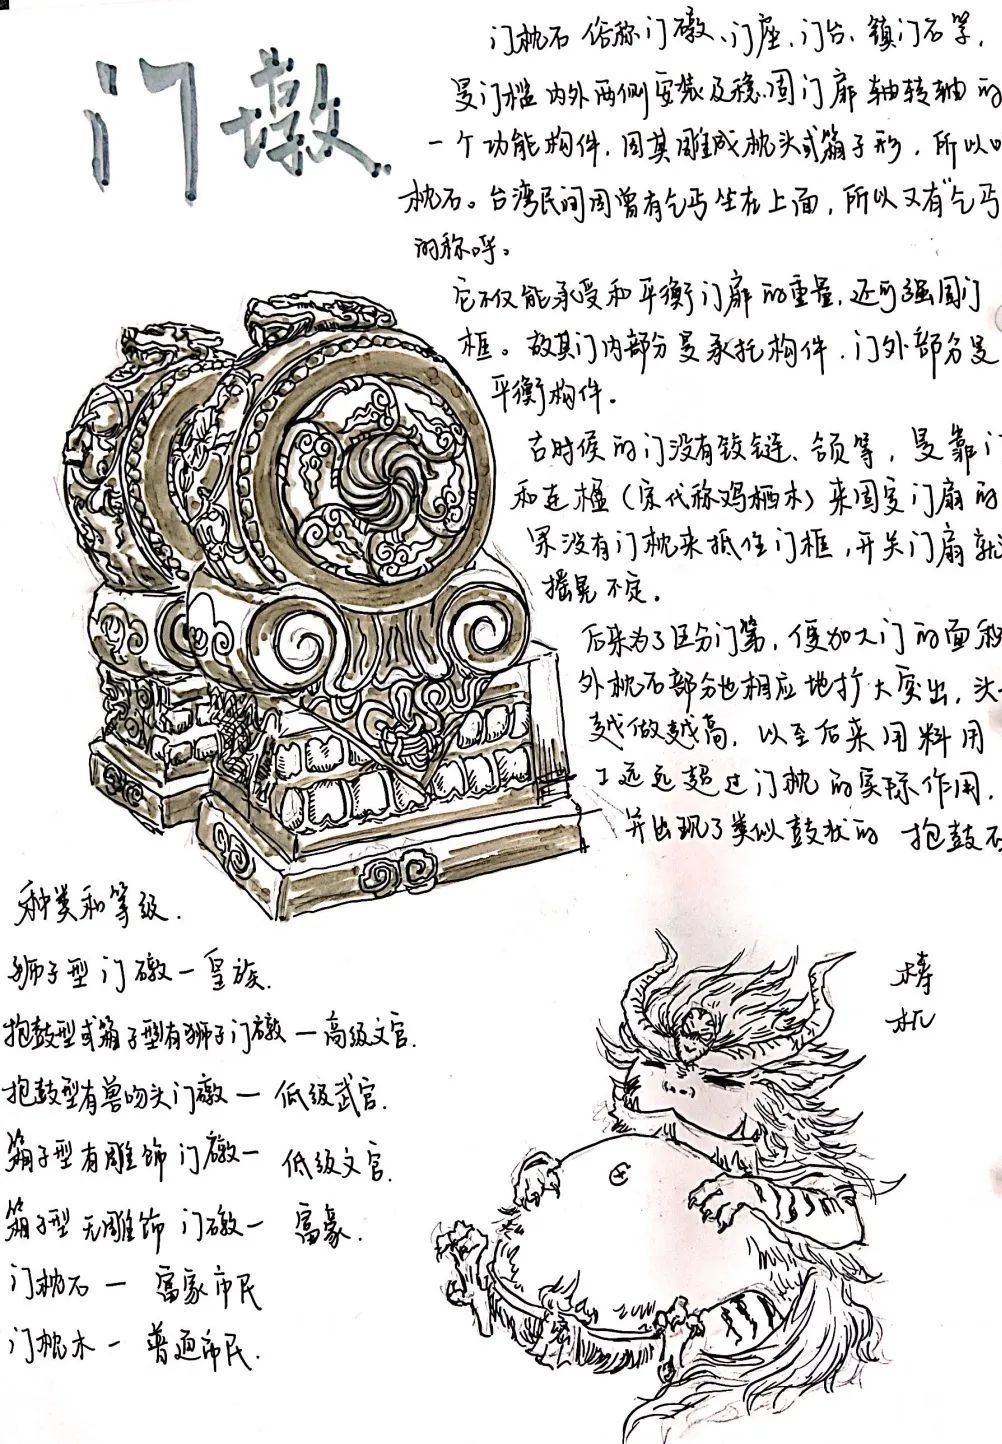 门墩
门枕石 俗称门礅、门座、门台、镇门石等,
是门槛内外两侧安装及稳固门扉轴转轴的
一个功能构件,因其雕成枕头或箱子形,所以
枕石。台湾民间因曾有乞丐坐在上面,所以又有“乞丐
的称呼。
它不仅能承受和平衡门扉的重量,还可强固门
框。故其门内部分是承托构件,门外部分是
平衡构件。
古时候的门没有铰链、颌等,是靠
和连楹(宋代称鸡栖木)来固定门扇的
果没有门枕来抵住门框,开关门扇就
摇晃不定。
后来为了区分门第,便加大门的面积
外枕石部分也相应地扩大突出,头
越做越高,以至后来用料用
工远远超过门枕的实际作用,
并出现了类似鼓状的 抱鼓石
种类和等级.
狮子型门礅一皇族.
抱鼓型或箱子型有狮子门礅一高级文官.
抱鼓型有兽吻头门礅一 低级武官.
箱子型有雕饰门礅一 低级文官.
箱子型无雕饰 门礅一 富豪.
门枕石 一 富家市民
门枕木一 普通市民.
梼
杌